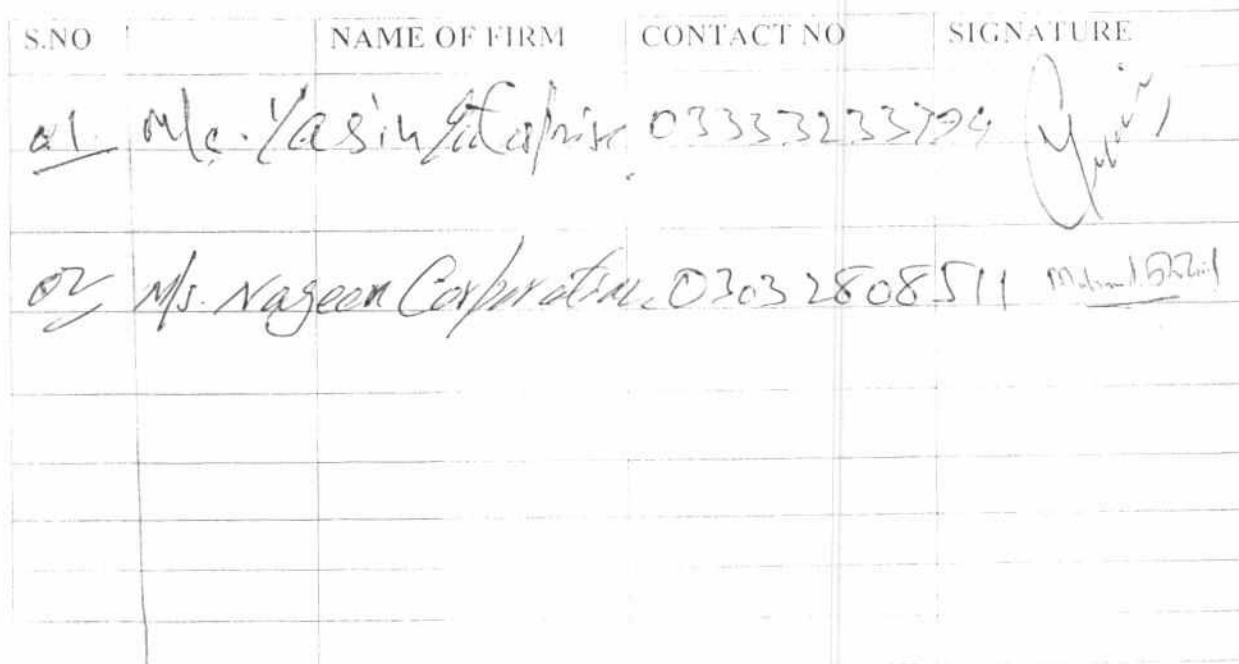 S.NO NAME OF FIRM CONTACT NO SIGNATURE
01. M/s. Yasin Enterprise 03333233794
02 M/s. Nageen Corporation. 03032808511